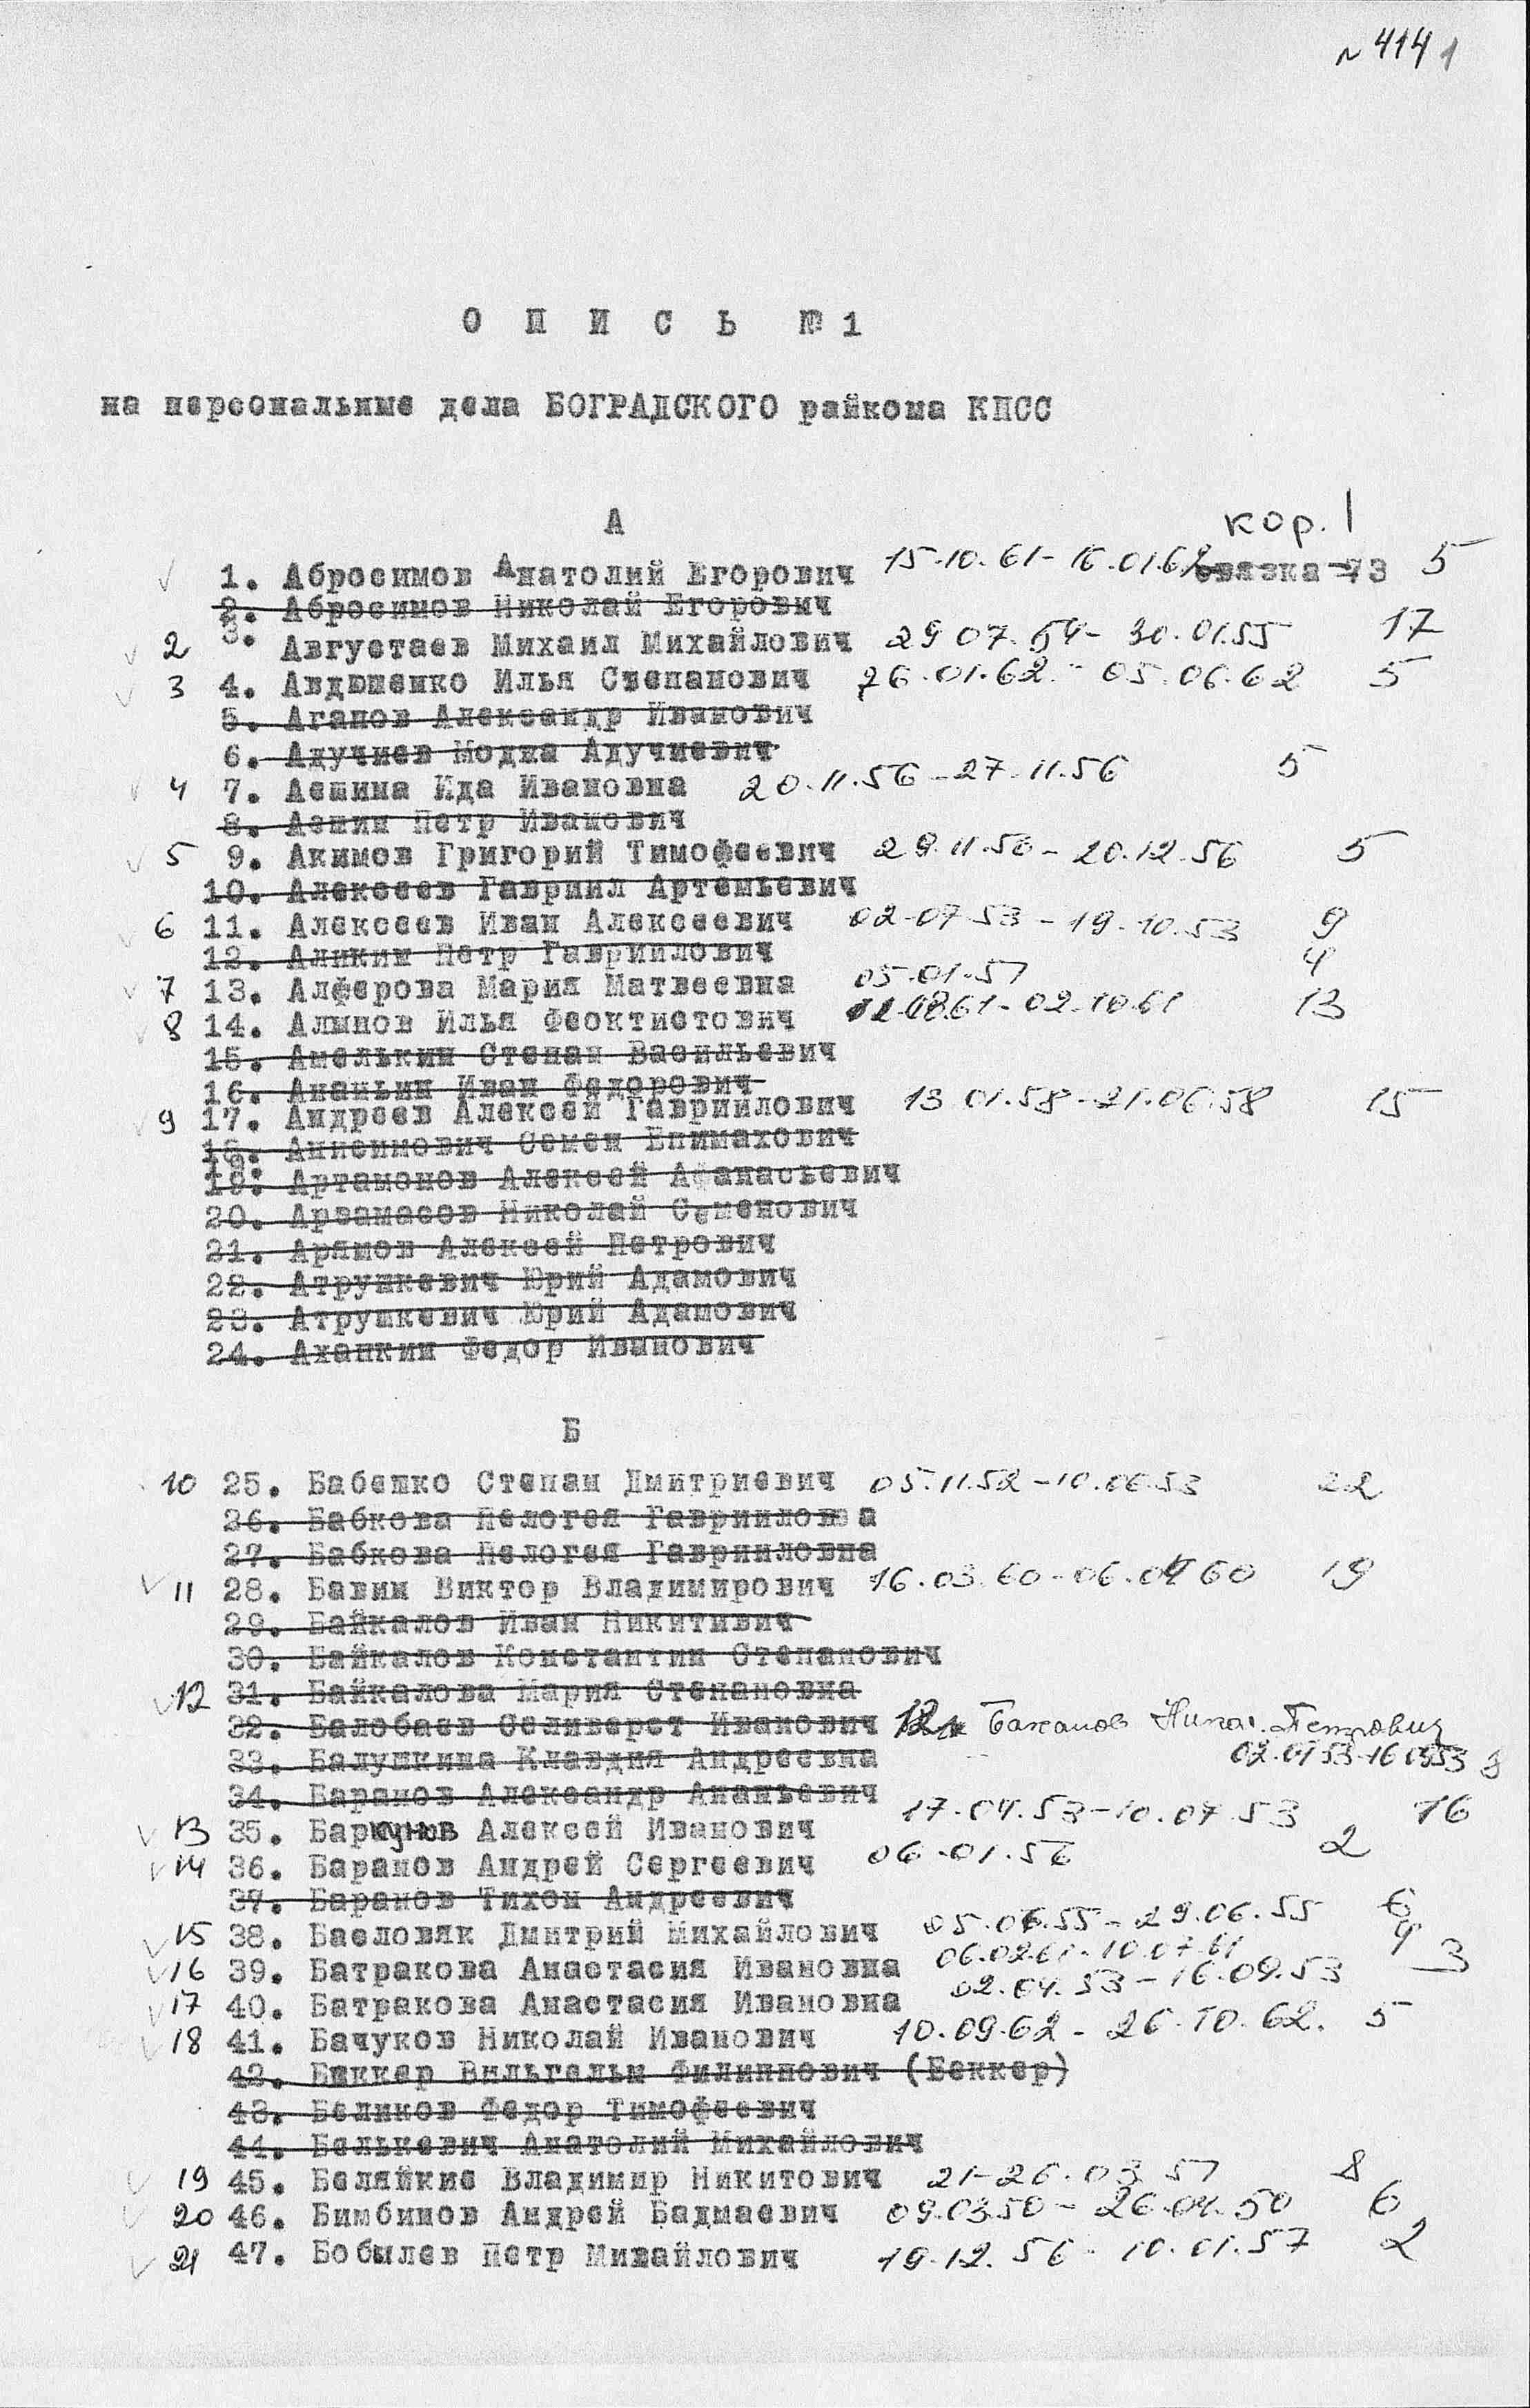 № 414 1
О П И С Ь № 1
на персональные дела БОГРАДСКОГО райкома КПСС
А
кор. 1
1. Абросимов Анатолий Егорович 15.10.61 - 16.01.62 связка 73 5
2. Абросимов Николай Егорович
2 3. Августаев Михаил Михайлович 29 07. 54 - 30.01.55 17
3 4. Авдюшенко Илья Степанович 26.01.62 - 05.06.62 5
5. Аганов Александр Иванович
6. Адучиев Модка Адучиевич
4 7. Аешина Ида Ивановна 20.11.56 - 27.11.56 5
8. Аешин Петр Иванович
5 9. Акимов Григорий Тимофеевич 29.11.56 - 20.12.56 5
10. Алексеев Гавриил Артемьевич
6 11. Алексеев Иван Алексеевич 02.07.53 - 19.10.53 9
12. Аликин Петр Гавриилович
7 13. Алферова Мария Матвеевна 05.01.57 4
8 14. Алынов Илья Феоктистович 08.61 - 02.10.61 13
15. Амелькин Степан Васильевич
16. Ананьин Иван Федорович
9 17. Андреев Алексей Гавриилович 13 01.58 - 21.06.58 15
18. Анисимович Семен Епимахович
19. Артамонов Алексей Афанасьевич
20. Арзамасов Николай Семенович
21. Арямов Алексей Петрович
22. Атрушкевич Юрий Адамович
23. Атрушкевич Юрий Адамович
24. Аханкин Федор Иванович
Б
10 25. Бабешко Степан Дмитриевич 05.11.52 - 10.06.53 22
26. Бабкова Пелогея Гаврииловна
27. Бабкова Пелогея Гаврииловна
11 28. Бавин Виктор Владимирович 16.03.60 - 06.04 60 19
29. Байкалов Иван Никитивич
30. Байкалов Константин Степанович
12 31. Байкалова Мария Степановна
32. Балобаев Селиверст Иванович 12 Баканов Никол. Петрович
33. Балушкина Клавдия Андреевна 02.07 53 - 16 09 53 3
34. Баранов Александр Ананьевич
13 35. Баркунов Алексей Иванович 17.04.53 - 10.07.53 16
14 36. Баранов Андрей Сергеевич 06.01.56 2
37. Баранов Тихон Андреевич
15 38. Басловяк Дмитрий Михайлович 05.06.55 - 29.06.55 6
16 39. Батракова Анастасия Ивановна 06.02.61 - 10.07.61 4
17 40. Батракова Анастасия Ивановна 02.04.53 - 16.09.53 3
18 41. Бачуков Николай Иванович 10.09.62 - 26.10.62. 5
42. Биккер Вильгельм Филиппович (Беккер)
43. Беликов Федор Тимофеевич
44. Белькевич Анатолий Михайлович
19 45. Беляйкие Владимир Никитович 21-26.03 57 8
20 46. Бимбинов Андрей Бадмаевич 09.03.50 - 26.04.50 6
21 47. Бобылев Петр Михайлович 19.12.56 - 10.01.57 2